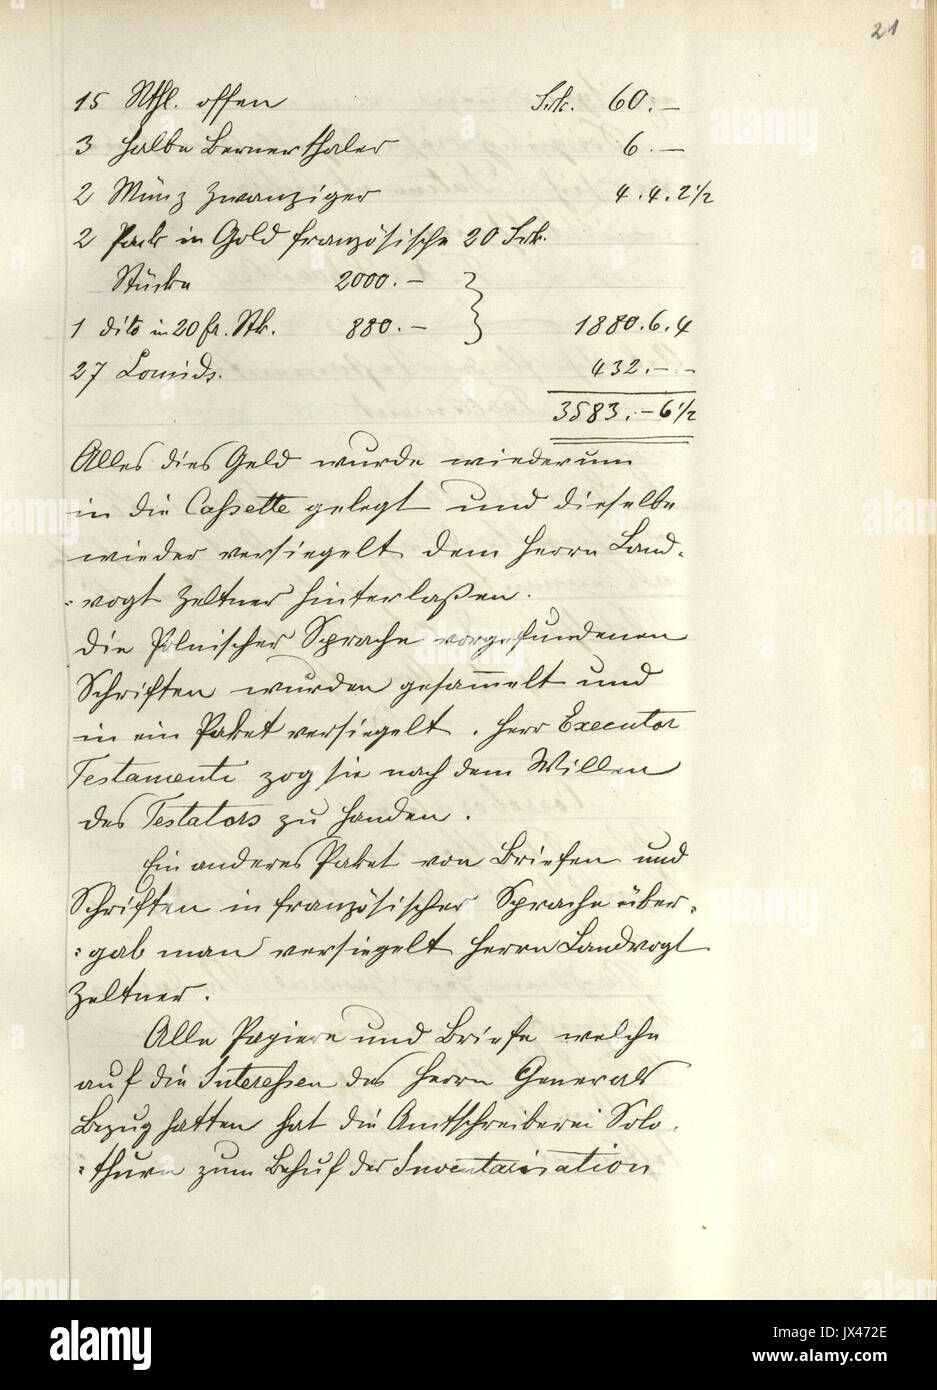 21
15 Nthl. offen Frk. 60.–
3 halbe Bernerthaler 6.–
2 Münz Zwanziger 4.4.2½
2 Pack in Gold französische 20 Frk.
Stücke 2000.–
1 dito in 20 fr. Stk. 880.– 1880.6.4
27 Louisds. 432.–.–
3583.–6½
Alles dies Geld wurde wiederum
in die Cassette gelegt und dieselbe
wieder versiegelt dem Herrn Land-
:vogt Zeltner hinterlaßen.
Die Polnischer Sprache vorgefundenen
Schriften wurden gesam̅elt und
in ein Paket versiegelt. Herr Executor
Testamenti zog sie nach dem Willen
des Testators zu Handen.
Ein anderes Paket von Briefen und
Schriften in französischer Sprache über-
:gab man versiegelt Herrn Landvogt
Zeltner.
Alle Papiere und Briefe welche
auf die Interessen des Herrn Generals
Bezug hatten hat die Amtschreiberei Solo-
:thurn zum Behuf der Inventarisation
alamy
Image ID: JX472E
www.alamy.com